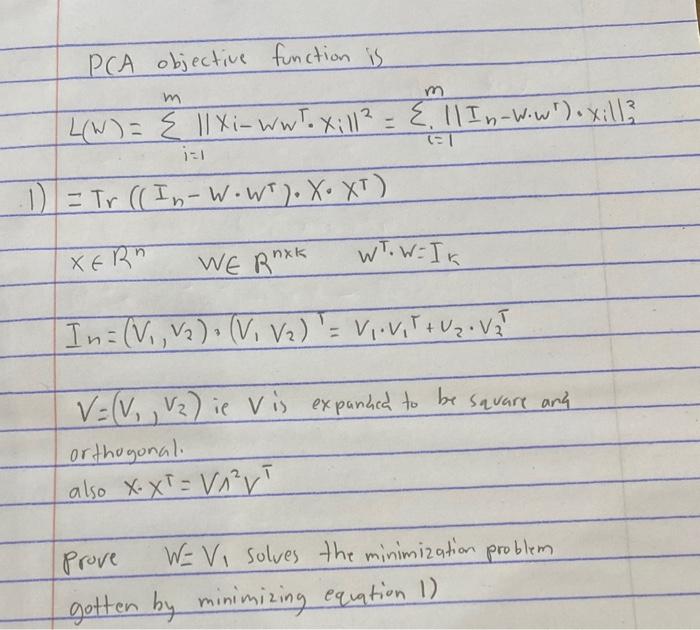 PCA objective function is
L(W) = Σ_{i=1}^{m} ||Xi - WW^T · Xi||² = Σ_{i=1}^{m} ||In - W·W^T) · Xi||₂²
1) = Tr ((In - W · W^T) · X · X^T)
X ∈ R^n W ∈ R^{n×k} W^T · W = I_k
In = (V₁, V₂) · (V₁ V₂)^T = V₁ · V₁^T + V₂ · V₂^T
V = (V₁, V₂) ie V is expanded to be square and
orthogonal.
also X · X^T = VΛ²V^T
Prove W = V₁ solves the minimization problem
gotten by minimizing equation 1)